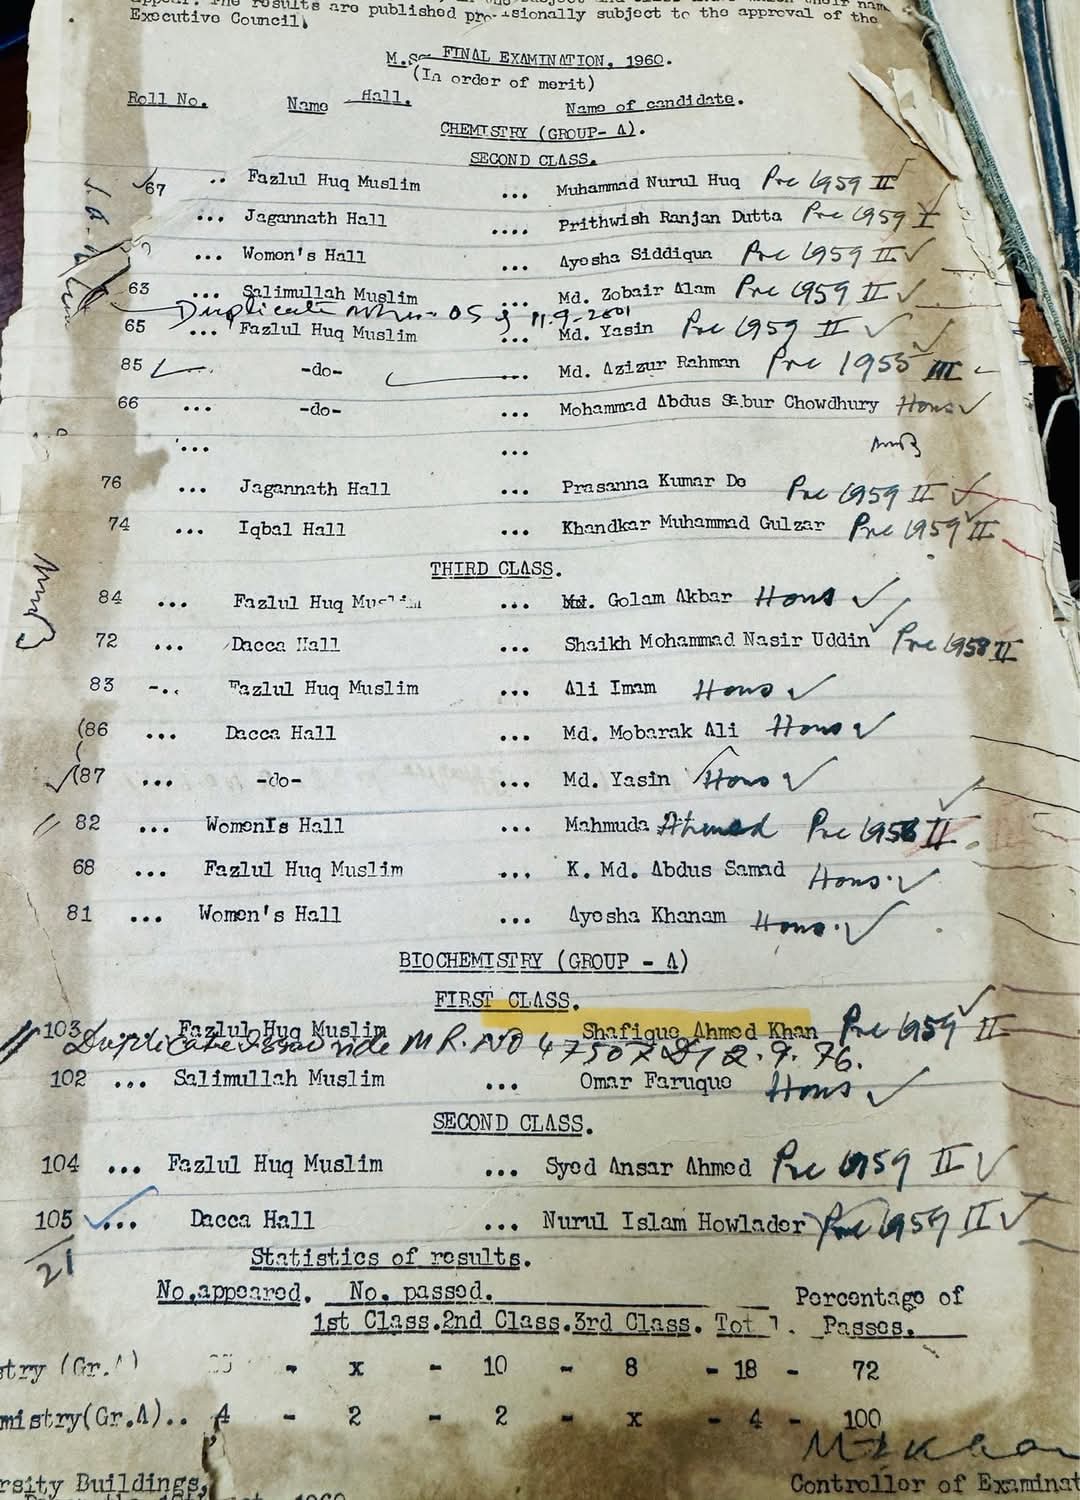 results are published provisionally subject to the approval of the
Executive Council.
M.Sc FINAL EXAMINATION, 1960.
(In order of merit)
Roll No. Name Hall. Name of candidate.
CHEMISTRY (GROUP- A).
SECOND CLASS.
67 .. Fazlul Huq Muslim ... Muhammad Nurul Huq Pre 1959 II
... Jagannath Hall .... Prithwish Ranjan Dutta Pre 1959
... Women's Hall ... Ayesha Siddiqua Pre 1959 II
63 ... Salimullah Muslim ... Md. Zobair Alam Pre 1959 II
Duplicate 11.9.2001
65 ... Fazlul Huq Muslim ... Md. Yasin Pre 1959 II
85 -do- ... Md. Azizur Rahman Pre 1955 III
66 ... -do- ... Mohammad Abdus Sabur Chowdhury Hons
... ...
76 ... Jagannath Hall ... Prasanna Kumar De Pre 1959 II
74 ... Iqbal Hall ... Khandkar Muhammad Gulzar Pre 1959 II
THIRD CLASS.
84 ... Fazlul Huq Muslim ... Md. Golam Akbar Hons
72 ... Dacca Hall ... Shaikh Mohammad Nasir Uddin Pre 1958 II
83 ... Fazlul Huq Muslim ... Ali Imam Hons
(86 ... Dacca Hall ... Md. Mobarak Ali Hons
(87 ... -do- ... Md. Yasin Hons
82 ... WomenIs Hall ... Mahmuda Ahmed Pre II
68 ... Fazlul Huq Muslim ... K. Md. Abdus Samad Hons.
81 ... Women's Hall ... Ayesha Khanam Hons.
BIOCHEMISTRY (GROUP - A)
FIRST CLASS.
103 Fazlul Huq Muslim Shafique Ahmed Khan Pre 1959 II
Duplicate Issued vide M R. NO 47507 Dt 2.9.76.
102 ... Salimullah Muslim ... Omar Faruque Hons
SECOND CLASS.
104 ... Fazlul Huq Muslim ... Syed Ansar Ahmed Pre 1959 II
105 ... Dacca Hall ... Nurul Islam Howlader Pre 1959 II
21
Statistics of results.
No.appeared. No. passed. Percentage of
1st Class. 2nd Class. 3rd Class. Total. Passes.
stry (Gr.A) - x - 10 - 8 - 18 - 72
mistry(Gr.A).. 4 - 2 - 2 - x - 4 - 100
rsity Buildings,
Controller of Examinat